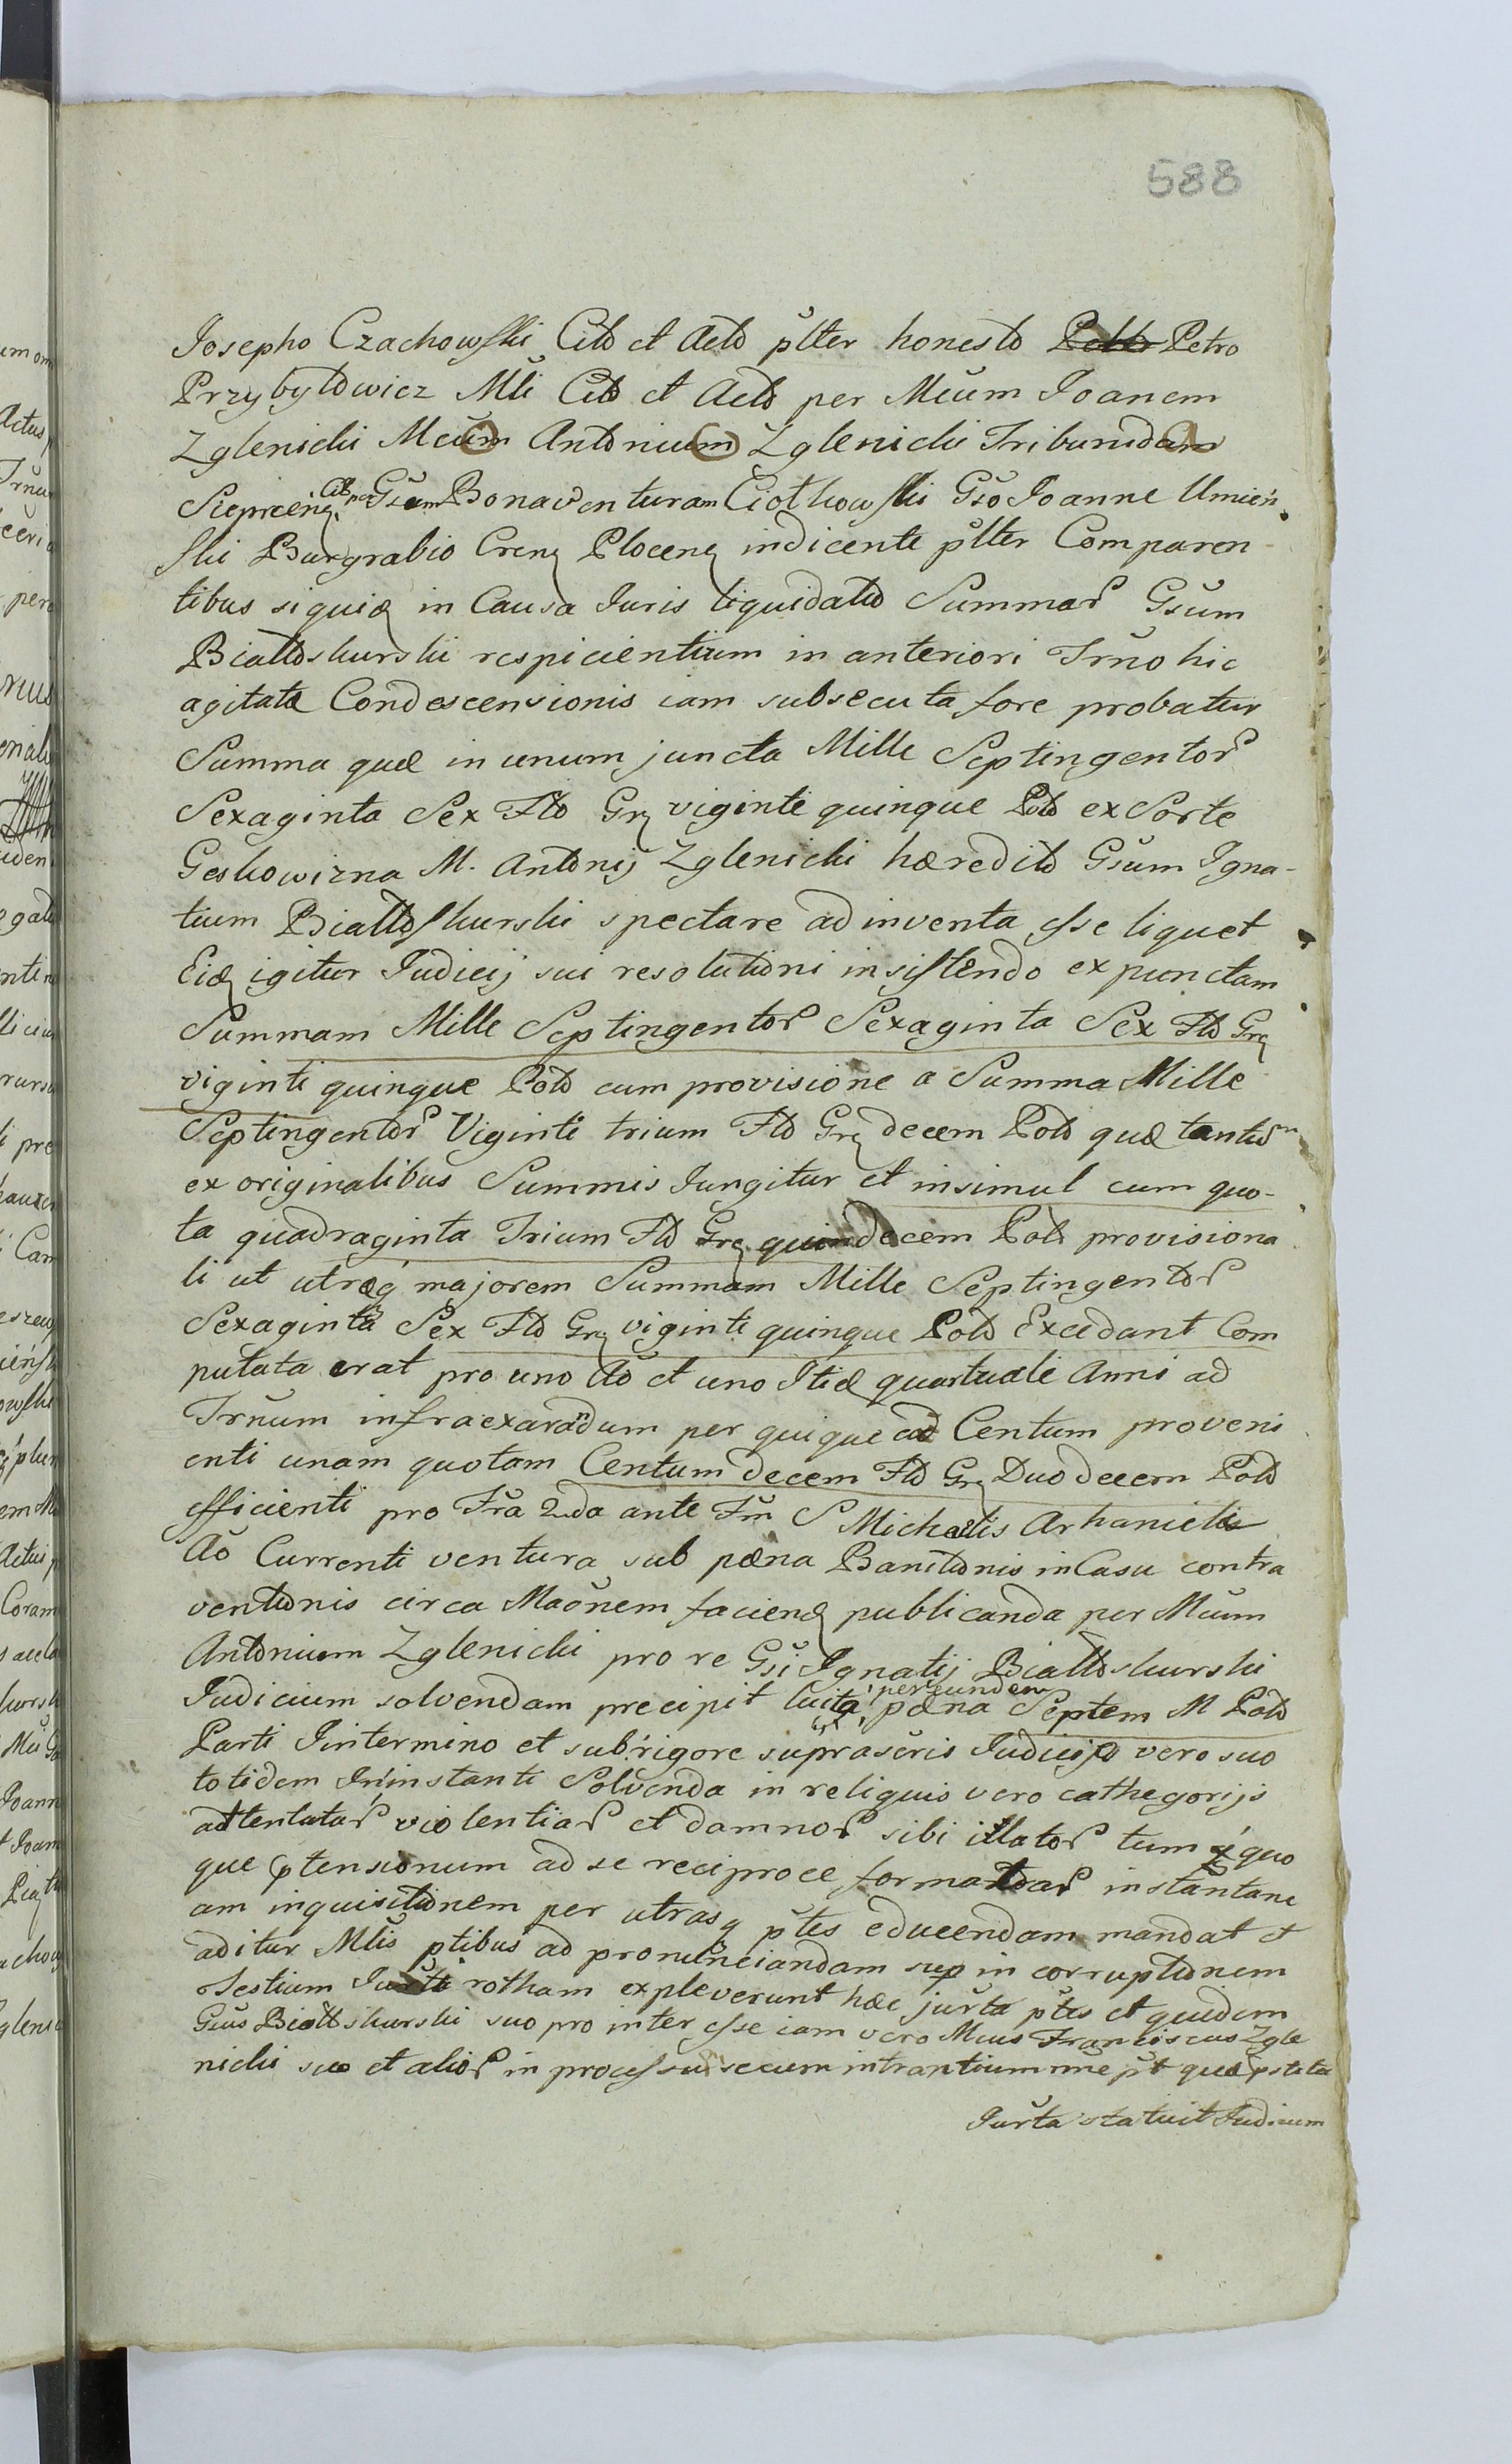 588
Josepho Czachowski Citō et Actō p̄lter honesto Petro Petro
Przybyłowicz Mli Citō et Actō per Mcum Joanem
Zglenicki Mcum Antonium Zglenicki Tribunidam
Sieprcen Cit per Gsum Bonaventuram Ciołkowski Gso Joanne Umień
ski Burgrabio Cren Plocen indicente p̄lter Comparen
tibus siquid in Causa Juris liquidatio Summar Gsum
Białłoskurski respicientium in anteriori Trno hic
agitata Condescensionis iam subsecuta fore probatur
Summa quæ in unum juncta Mille Septingentor
Sexaginta Sex Flo Gr viginti quinque Polo ex Sorte
Geskowizna M. Antonij Zglenicki hæredito Gsum Igna-
tium Białłoskurski spectare ad inventa esse liquet
Eid igitur Judicij sui resolutioni insistendo expunctam
Summam Mille Septingentor Sexaginta Sex Flo Gr
viginti quinque Polo cum provisione a Summa Mille
Septingentor Viginti trium Flo Gr decem Polo quæ tantum
ex originalibus Summis Jungitur et insimul cum quo-
ta quadraginta Trium Flo Gr quindecem Polo provisiona
li ut utraq majorem Summam Mille Septingentor
Sexaginta Sex Flo Gr viginti quinque Polo Excedant Com
putata erat pro uno Ao et uno Itid quartuale Anni ad
Trnum infraexarandum per quique ad Centum proveni
enti unam quotam Centum decem Flo Gr Duodecem Polo
efficienti pro Fra 2da ante Fm S Michaelis Arhanielis
Ao Currenti ventura sub pæna Banitionis in Casu contra
ventionis circa Maōnem faciend publicanda per Mcum
Antonium Zglenicki pro re Gsi Ignatij Białłoskurski
Judicium solvendam precipit luita per eundem pæna Septem M Polo
Parti In termino et sub rigore suprascris Judicijo vero suo
totidem In instanti Solvenda in reliquis vero cathegorijs
attentatar violentiar et damnor sibi illator tum quo
que ptensionum ad se reciproce formandar instantane
am inquisitionem per utrasq p̄tes educendam mandat et
aditur Mlis p̄tibus ad pronunciandam sup in corruptionem
Testium rotham expleverunt hæc jurta p̄tes et quidem
Gsus Białłskurski suo pro interesse iam vero Mcus Franciscus Zgle
nicki suo et alior in processu secum intrantium nne p̄t quæ pstita
Jurta statuit Judicium